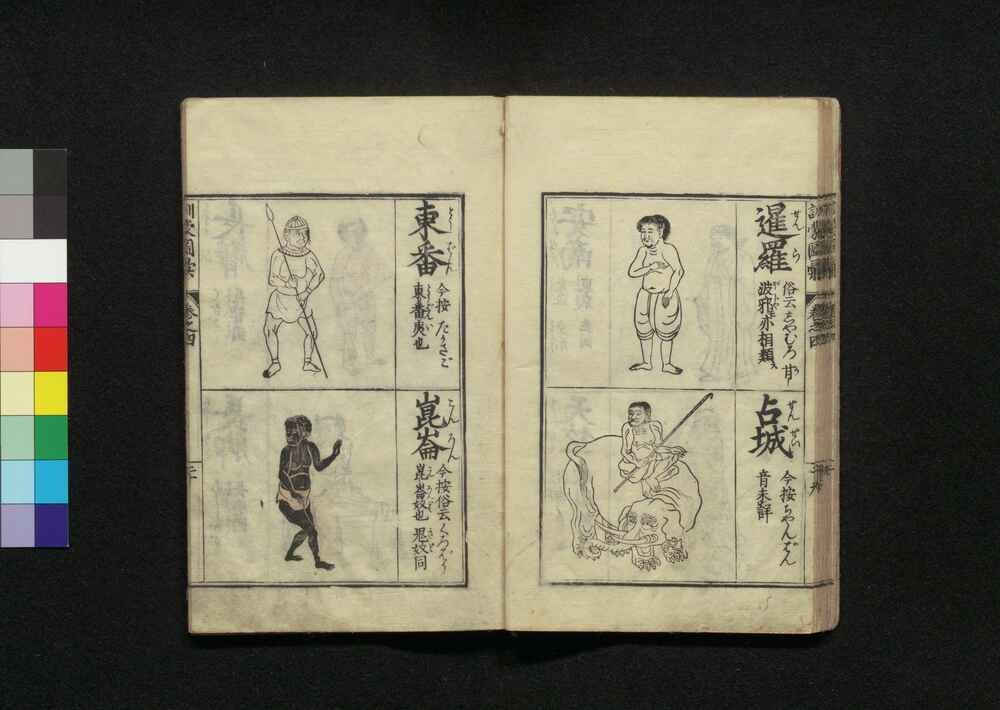 暹羅
せんら
俗云しやむろ 甘
波邪亦相類ス
占城
せんせい
今按ちやんはん
音未詳
訓蒙圖彙
卷之四
東番
とうばん
今按 たかさご
東番夷也
崑崙
こんろん
今按俗云くろばう
崑崙奴也 鬼奴同
訓蒙圖彙
卷之四